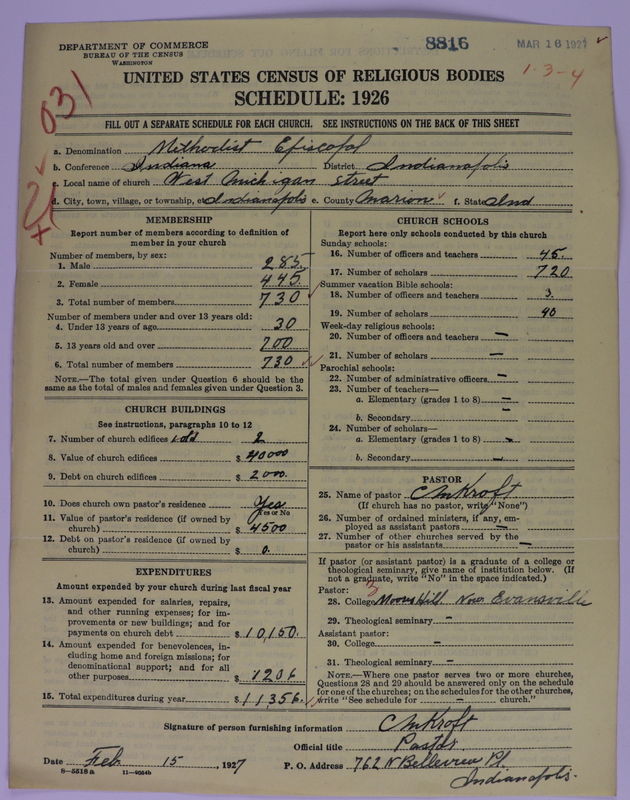 DEPARTMENT OF COMMERCE
BUREAU OF THE CENSUS
WASHINGTON
8816
MAR 16 1927
1-3-4
031
UNITED STATES CENSUS OF RELIGIOUS BODIES
SCHEDULE: 1926
FILL OUT A SEPARATE SCHEDULE FOR EACH CHURCH. SEE INSTRUCTIONS ON THE BACK OF THIS SHEET
a. Denomination Methodist Episcopal
b. Conference Indiana District Indianapolis
c. Local name of church West Michigan Street
d. City, town, village, or township, etc Indianapolis e. County Marion f. State Ind
MEMBERSHIP
Report number of members according to definition of
member in your church
Number of members, by sex:
1. Male 285
2. Female 445
3. Total number of members 730
Number of members under and over 13 years old:
4. Under 13 years of age 30
5. 13 years old and over 700
6. Total number of members 730
NOTE.—The total given under Question 6 should be the
same as the total of males and females given under Question 3.
CHURCH BUILDINGS
See instructions, paragraphs 10 to 12
7. Number of church edifices 2
8. Value of church edifices $ 40000
9. Debt on church edifices $ 2000.
10. Does church own pastor's residence Yes
Yes or No
11. Value of pastor's residence (if owned by
church) $ 4500
12. Debt on pastor's residence (if owned by
church) $ 0.
EXPENDITURES
Amount expended by your church during last fiscal year
13. Amount expended for salaries, repairs,
and other running expenses; for im-
provements or new buildings; and for
payments on church debt $ 10,150.
14. Amount expended for benevolences, in-
cluding home and foreign missions; for
denominational support; and for all
other purposes $ 1206
15. Total expenditures during year $ 11,356.
CHURCH SCHOOLS
Report here only schools conducted by this church
Sunday schools:
16. Number of officers and teachers 45.
17. Number of scholars 720
Summer vacation Bible schools:
18. Number of officers and teachers 3.
19. Number of scholars 90
Week-day religious schools:
20. Number of officers and teachers —
21. Number of scholars —
Parochial schools:
22. Number of administrative officers —
23. Number of teachers—
a. Elementary (grades 1 to 8) —
b. Secondary —
24. Number of scholars—
a. Elementary (grades 1 to 8) —
b. Secondary —
PASTOR
25. Name of pastor C M Kroft
(If church has no pastor, write "None")
26. Number of ordained ministers, if any, em-
ployed as assistant pastors —
27. Number of other churches served by the
pastor or his assistants —
If pastor (or assistant pastor) is a graduate of a college or
theological seminary, give name of institution below. (If
not a graduate, write "No" in the space indicated.)
Pastor: 3
28. College Moores Hill. Now Evansville
29. Theological seminary —
Assistant pastor:
30. College —
31. Theological seminary —
NOTE.—Where one pastor serves two or more churches,
Questions 28 and 29 should be answered only on the schedule
for one of the churches; on the schedules for the other churches,
write "See schedule for — church."
Signature of person furnishing information C M Kroft
Official title Pastor
Date Feb 15, 1927 P. O. Address 762 N Belleview Pl.
8—5518a 11—9054b Indianapolis.